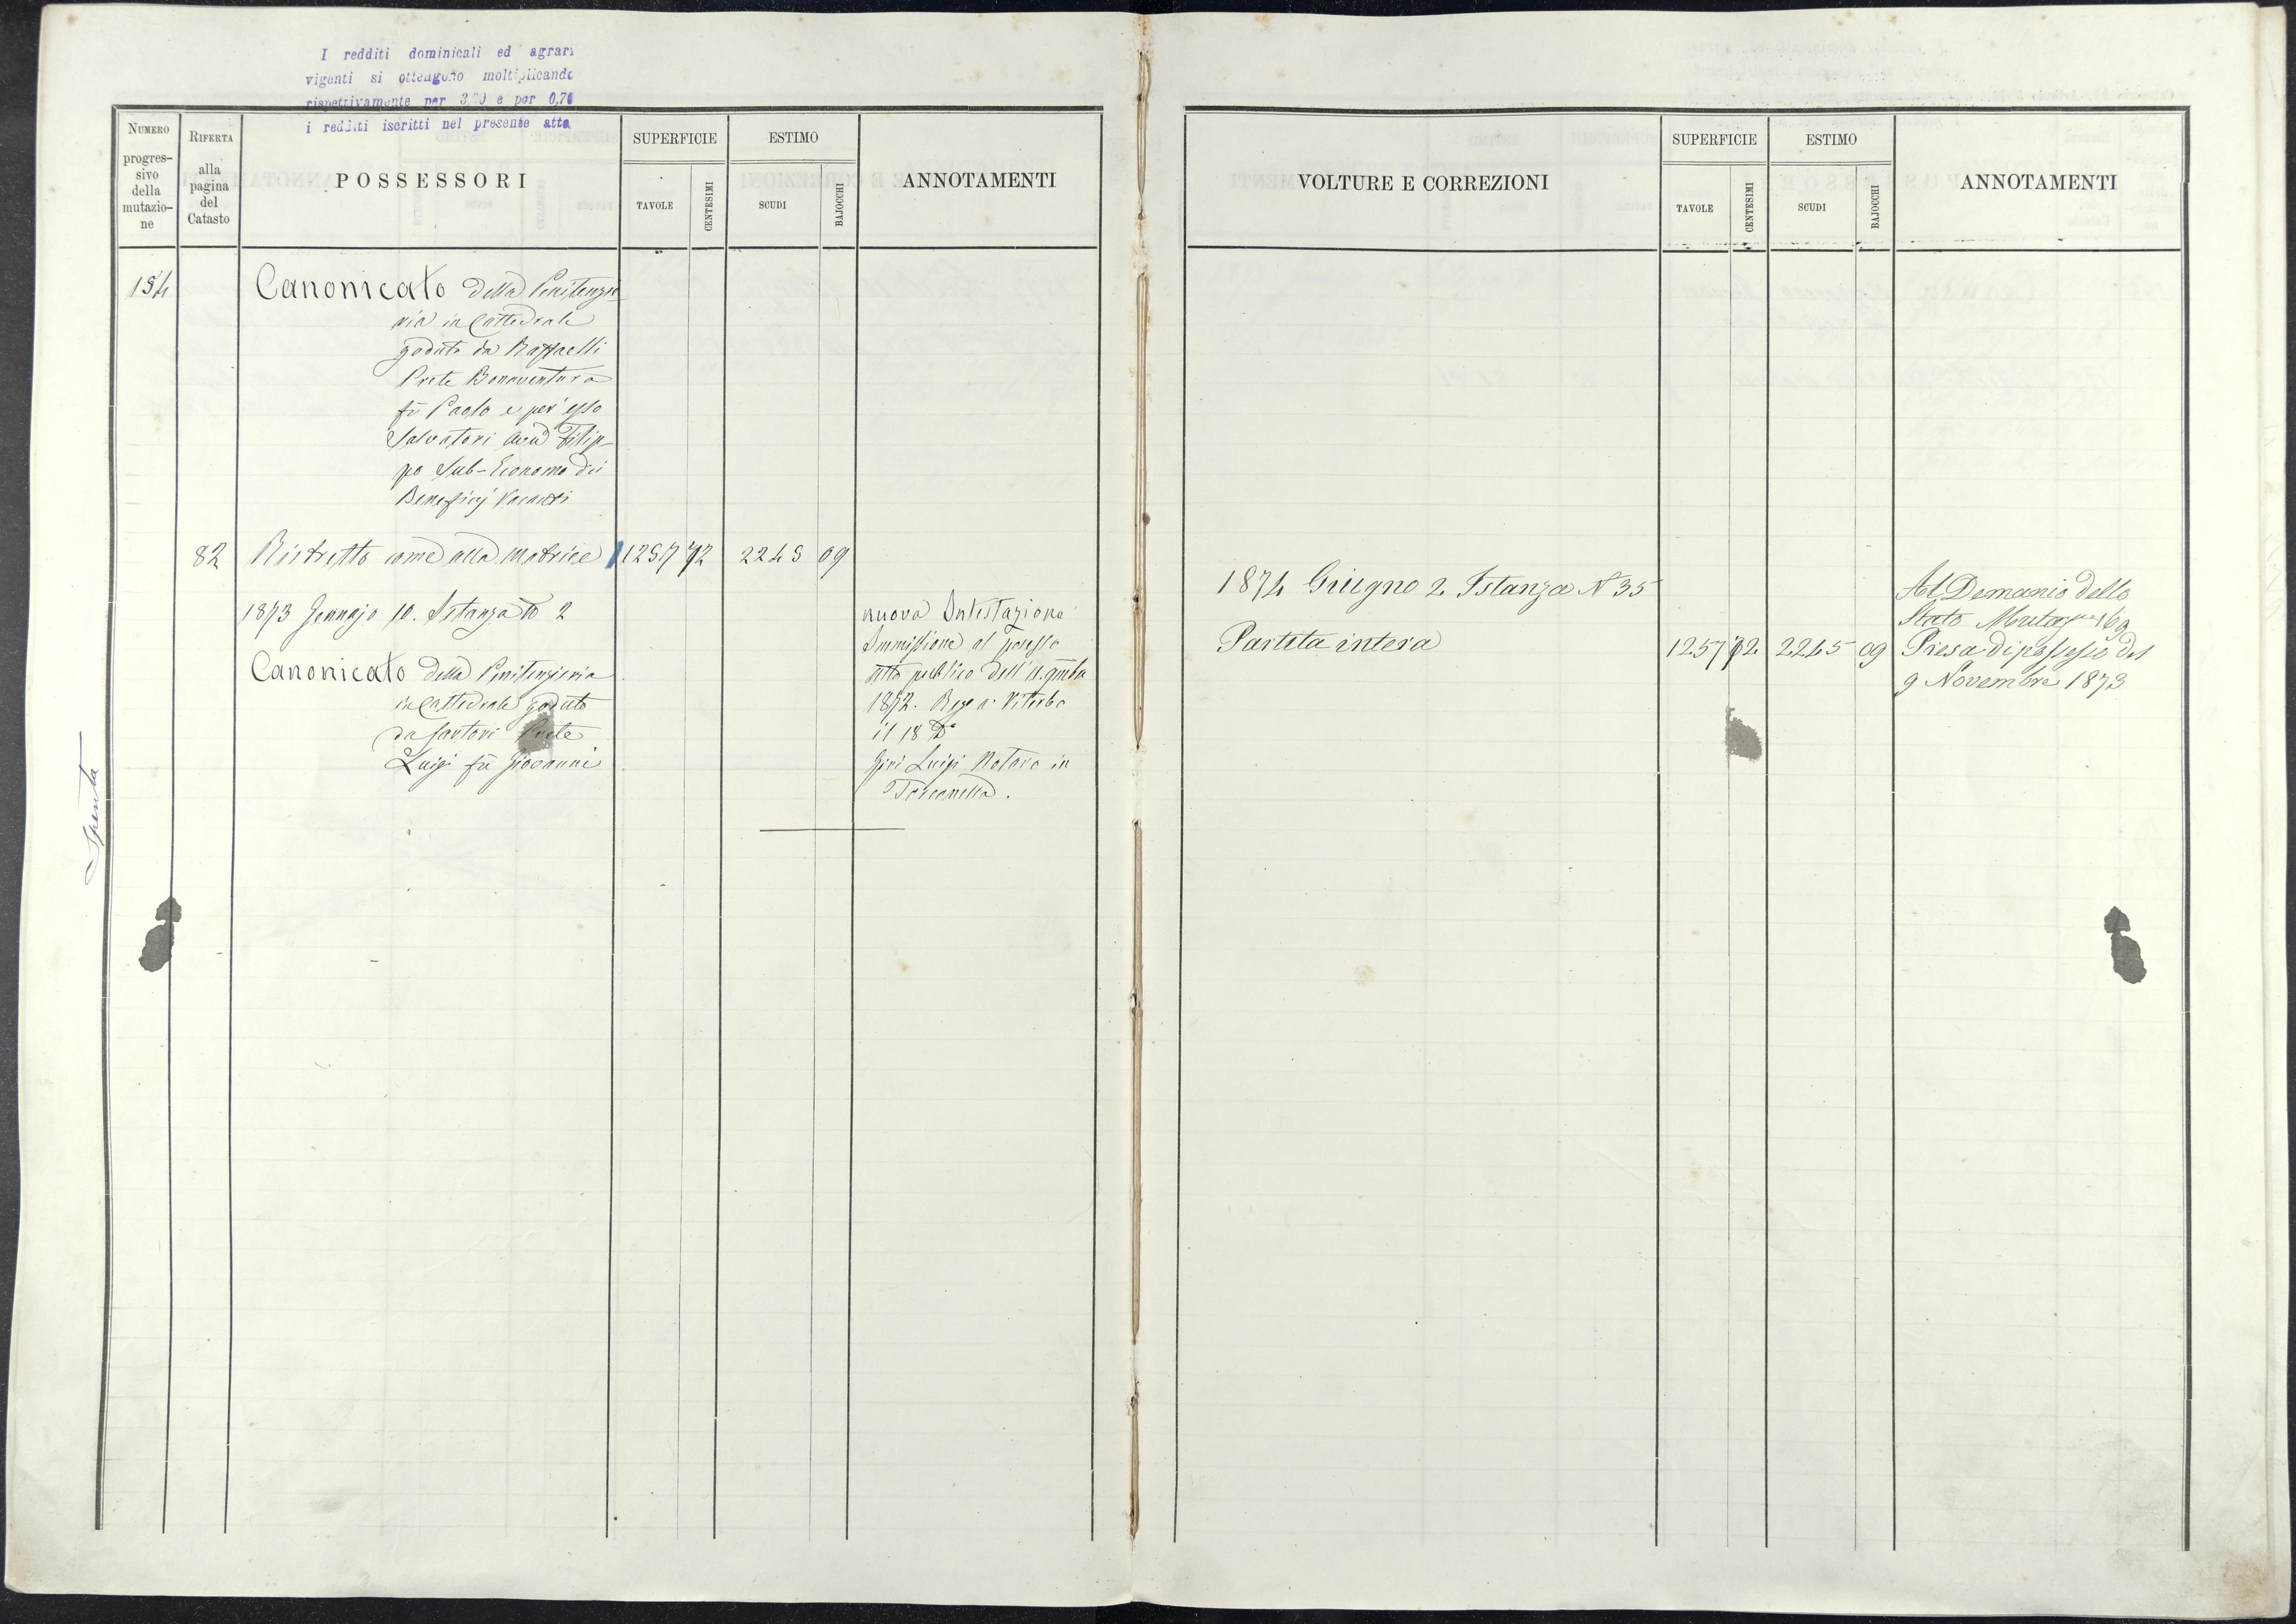 I redditi dominicali ed agrari
vigenti si ottengono moltiplicando
rispettivamente per 3,20 e per 0,70
i redditi iscritti nel presente atto
NUMERO
progres-
sivo
della
mutazio-
ne
RIFERTA
alla
pagina
del
Catasto
POSSESSORI
SUPERFICIE
TAVOLE
CENTESIMI
ESTIMO
SCUDI
BAJOCCHI
ANNOTAMENTI
154
Canonicato della Penitenzie
ria in Cattedrale
goduto da Raffaelli
Prete Bonaventura
fù Paolo e per esso
Salvatori Filip-
po Sub-Economo dei
Beneficj Vacanti
82 Ristretto come alla Matrice 1257 72 2245 09
1873 Gennajo 10. Istanza No 2
Canonicato della Penitenzieria
in Cattedrale goduto
da Santori Prete
Luigi fù Giovanni
nuova Intestazione
Immissione al possesso
atto pubblico dell' 11.
1872. Rego a Viterbo
il 18 Do
Luigi Notaro in
Toscanella.
Spenta
VOLTURE E CORREZIONI
SUPERFICIE
TAVOLE
CENTESIMI
ESTIMO
SCUDI
BAJOCCHI
ANNOTAMENTI
1874 Giugno 2 Istanza N 35
Partita intera 1257 72 2245 09
Al Demanio dello
Stato Mutazne 169
Presa di possesso del
9 Novembre 1873